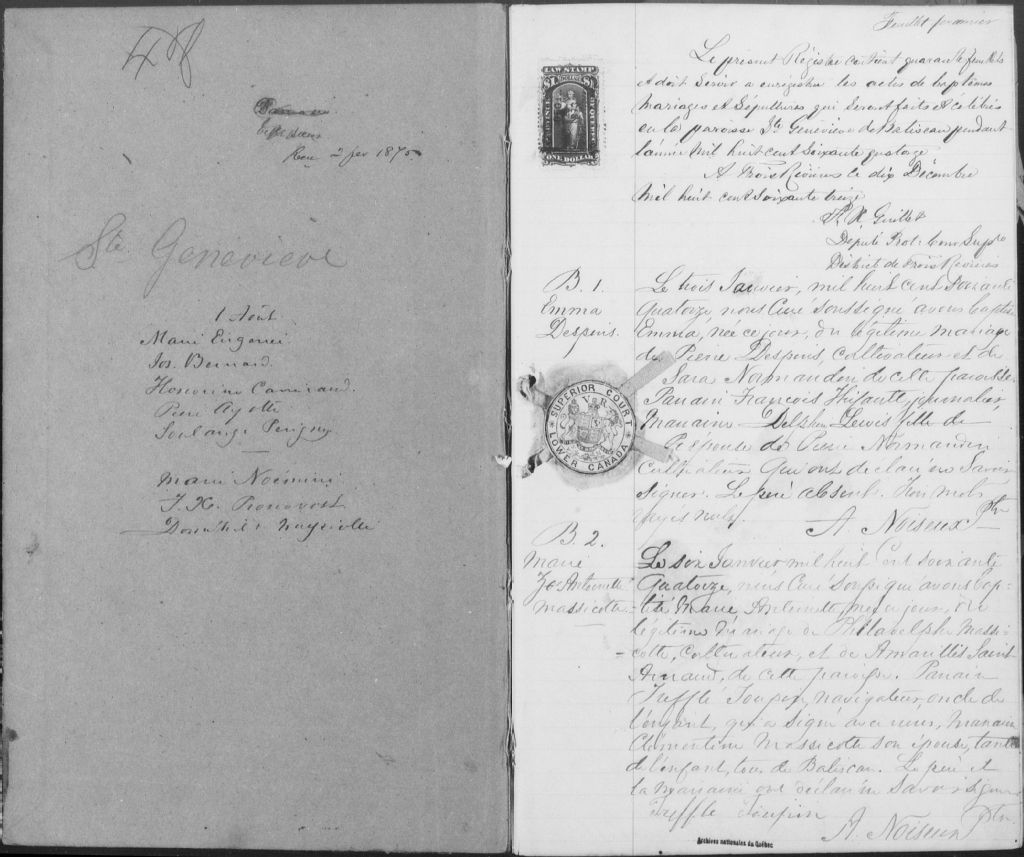 48
Reçu 2 Jan 1875
Ste Geneviève
1 Août
Marie Eugenie
Jos. Bernard
Pierre Ayotte
Solange Perigny
Marie Noémie
Feuillet premier
LAW STAMP
$1 DOLLAR $1
PROVINCE OF QUEBEC
ONE DOLLAR
Le présent Régistre contient quarante feuillets
et doit servir a enregistrer les actes de baptêmes
mariages et Sépultures qui seront faits et célébrés
en la paroisse Ste Geneviève de Batiscan pendant
l'année mil huit cent soixante quatorze
A Trois Rivières le dix Décembre
mil huit cent soixante treize
Guillet
Député Prot. Cour Supre
District de Trois Rivières
B. 1.
Emma
Despins.
Le trois Janvier, mil huit cent soixante
quatorze, nous Curé soussigné avons baptisé
Emma, née ce jour, du légitime mariage
de Pierre Despins, cultivateur et de
Sara Normandin de cette paroisse
Parrain François journalier,
Marraine Lewis fille de
épouse de Pierre Normandin
cultivateur qui ont déclaré ne savoir
signer. Le père absent. Trois mots
rayés nuls.
A Noiseux Ptre
SUPERIOR COURT
V R
LOWER CANADA
B. 2.
Marie
Antoinette
Massicotte
Le six Janvier mil huit cent soixante
quatorze, nous Curé soussigné avons bap-
tisé Marie Antoinette, née ce jour, du
légitime mariage de Philadelphe Massi-
cotte, cultivateur, et de Amarillis Saint
Arnaud, de cette paroisse. Parrain
Trefflé Toupin, navigateur, oncle de
l'enfant, qui a signé avec nous, Marraine
Clémentine Massicotte son épouse, tante
de l'enfant, tous de Batiscan. Le père et
la marraine ont déclaré ne savoir signer
Trefflé Toupin
A. Noiseux Ptre
Archives nationales du Québec